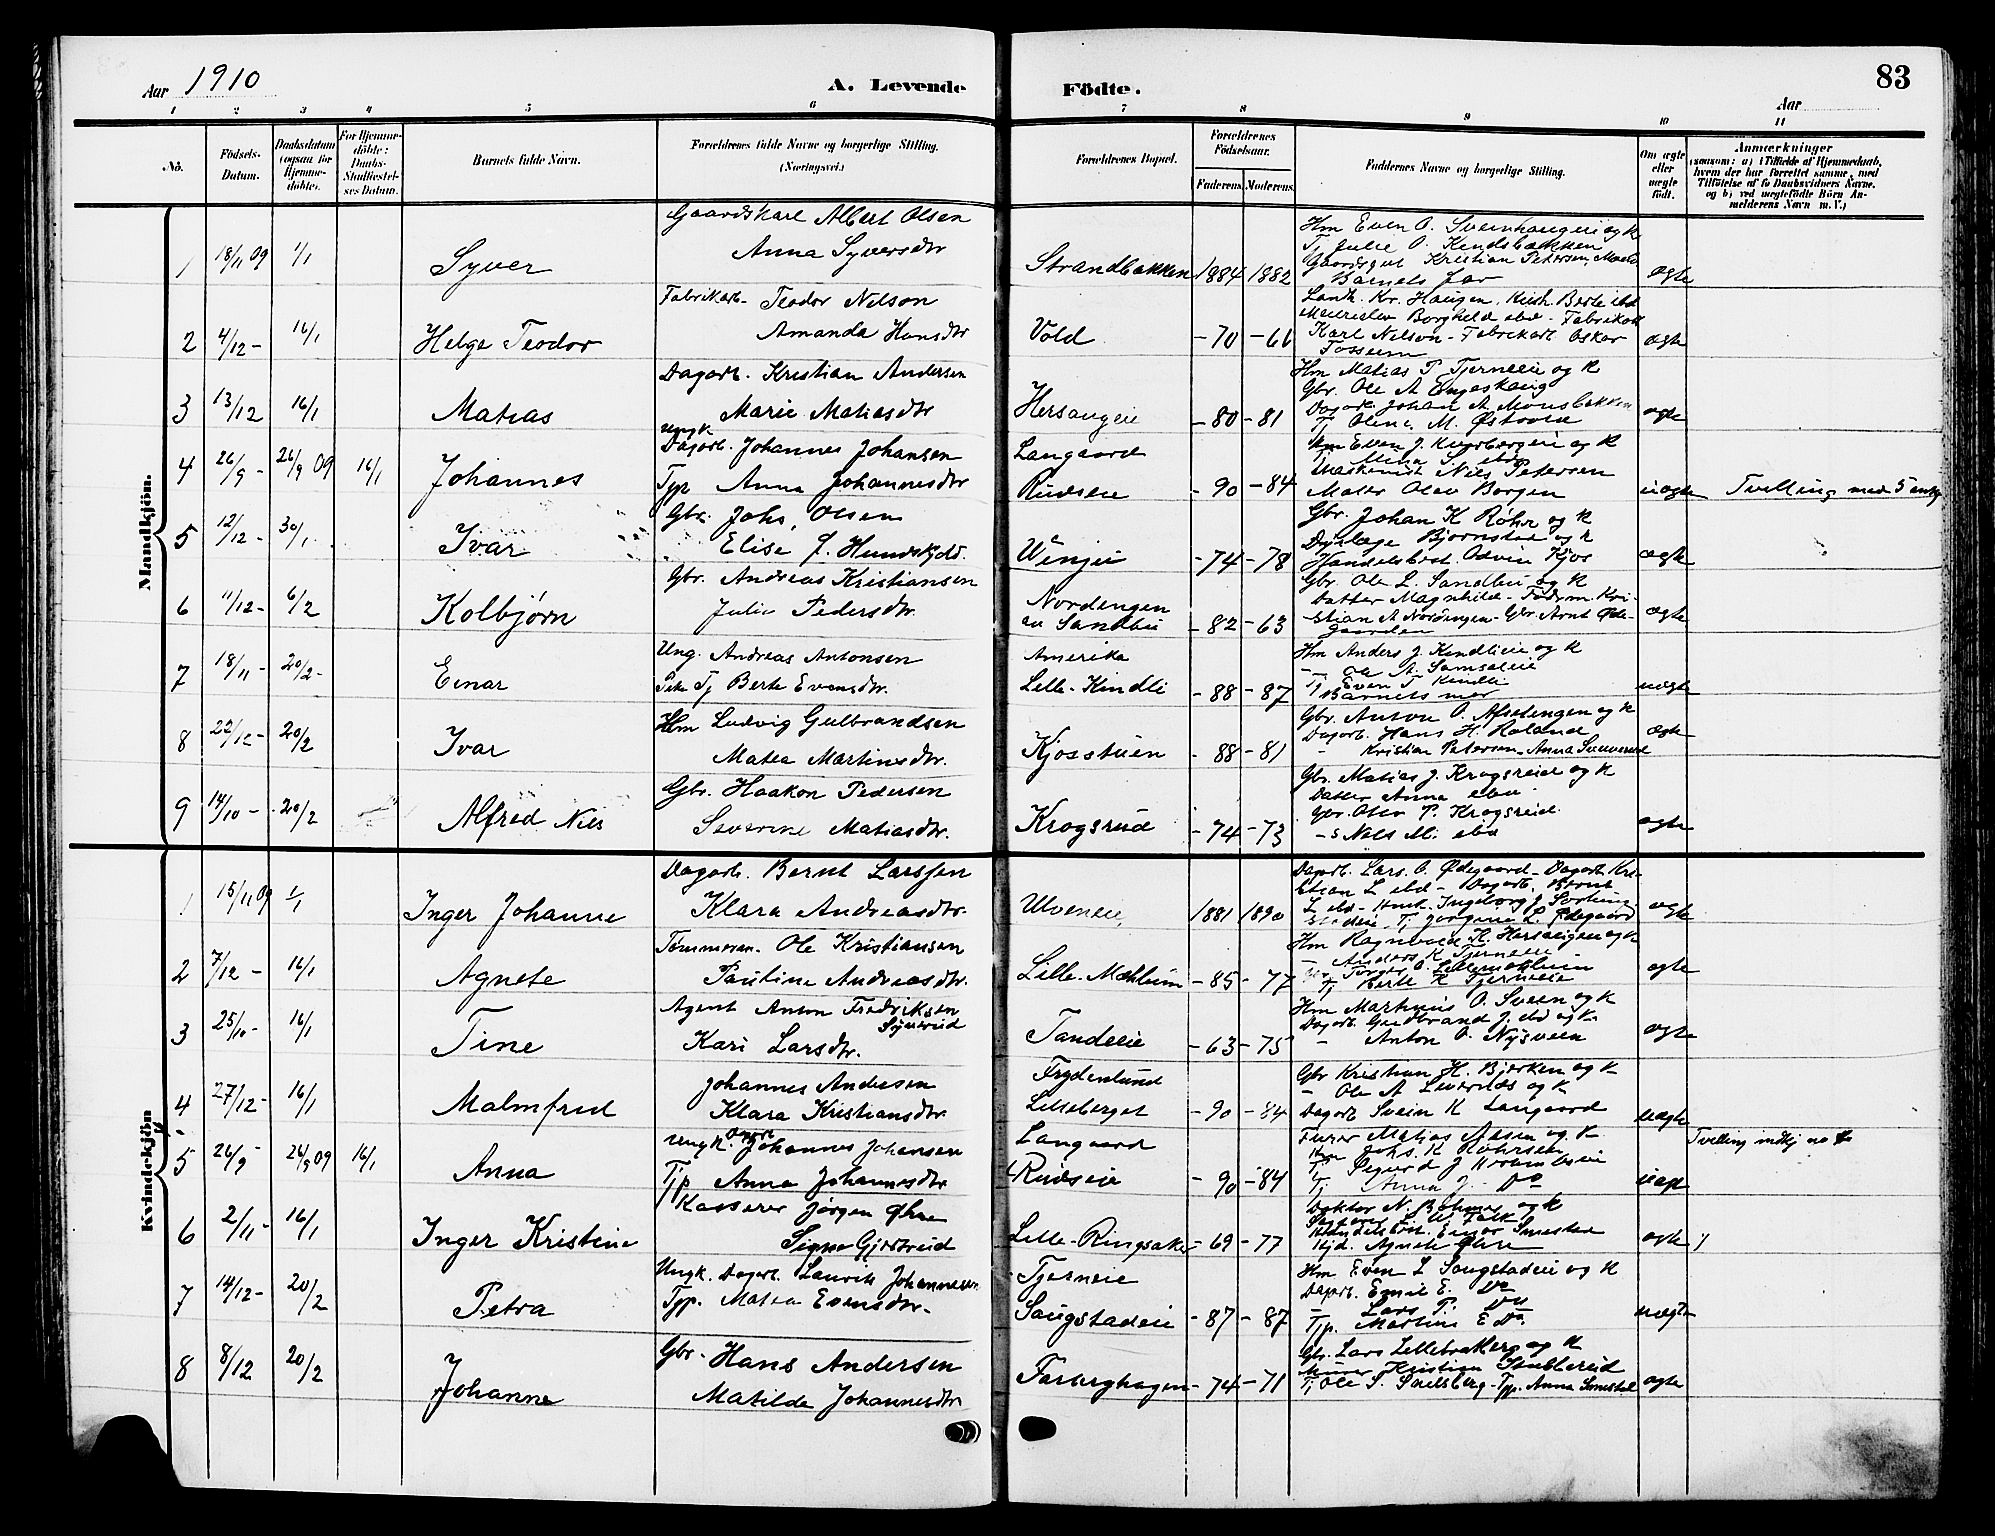 Aar 1910
A. Levende
Födte.
83
Aar
1 2 3 4 5 6 7 8 9 10 11
No.
Födsels-Datum.
Daabsdatum (ogsaa for Hjemmedöbte).
For Hjemmedöbte: Daabs-Stadfæstelses Datum.
Barnets fulde Navn.
Forældrenes fulde Navne og borgerlige Stilling. (Næringsvei.)
Forældrenes Bopæl.
Forældrenes Födselsaar.
Faderens. Moderens.
Faddernes Navne og borgerlige Stilling.
Om ægte eller uægte födt.
Anmærkninger
(saasom: a) i Tilfælde af Hjemmedaab, hvem der har forrettet samme, med Tilföielse af to Daabsvidners Navne, og b) ved uægtefödte Börn Anmelderens Navn m. V.)
Mandkjön.
1 18/11 09 1/1 Syver
Gaardskarl Albert Olsen
Anna Syversdtr
Strandbakken 1884 1882
Hm Even O. Sveinhaugeie og K
Tj Julie O. Kindsbakken
Kristian Petersen
Barnets far
ægte
2 4/12 - 16/1 Helge Teodor
Fabrikarb. Teodor Nilson
Amanda Hansdtr
Vold - 70 - 66
Kr. Haugen
Borghild ibd - Fabrikarb
Karl Nelson - Fabrikarb. Oskar
Fosseim
ægte
3 13/12 16/1 Matias
Dagarb. Kristian Andersen
Marie Matiasdtr
Hersaugeie - 80 - 81
Hm Matias P. Tjerneie og K
Gbr. Ole A Engeskaug
Dagarb. Johan A. Monsbakken
Tj Oline M.
ægte
4 26/9 - 26/9 09 16/1 Johannes
ungk
Dagarb. Johannes Johansen
Tjp Anna Johannesdtr
Langaard
Rudseie - 90 - 84
Hm Even J. og K
Nils Petersen
Maler Olav Borgen
uægte Tvilling med 5
5 12/12 - 30/1 Ivar
Gbr. Johs. Olsen
Elise J.
Wenju - 74 - 78
Gbr. Johan K Røhr og K
Dyrlæge Bjørnstad og K
Handelsbest. Odvin Kjos
ægte
6 11/12 - 6/2 Kolbjørn
Gbr. Andreas Kristiansen
Julie Pedersdtr.
Nordengen
av Sandbu - 82 - 63
Gbr. Ole L. Sandbu og K
Datter Magnhild - Kri-
stian A Nordengen - Gbr. Arnt Øde-
gaarden
ægte
7 18/11 - 20/2 - Einar
Ung. Andreas Antonsen
Pike Tj Berte Evensdtr.
Amerika
Lille-Kindli - 88 - 87
Hm Anders J. Kindlieie og K
- Ole A. Samsaleie
Tj Even T. Kindli
Barnets mor
uægte
8 22/12 - 20/2 Ivar
Hm Ludvig Gulbrandsen
Matea Martinsdtr.
Kjosstuen - 88 - 81
Gbr. Anton O. Afsetengen og K
Dagarb. Hans H. Roland
- Kristian Petersen - Anna
ægte
9 14/10 - 20/2 Alfred Nils
Gbr. Haakon Pedersen
Severine Matiasdtr.
Krogsrud - 74 - 73
Gbr. Matias J. Krogsrud og K
Datter Anna ibd
Gbr. Olev P. Krogsrud
- s Nils M. ibd
ægte
Kvindekjön
1 15/11 09 1/1 Inger Johanne
Dagarb. Bernt Larssen
Klara Andreasdtr.
Ulveneie 1881 1890
Dagarb. Lars O. Ødegaard - Dagarb. Kri-
stian L ibd - Dagarb. Bernt
L ibd - Ingeborg J.
Tj Jørgine L. Ødegaard
ægte
2 7/12 - 16/1 Agnete
Tømmerm. Ole Kristiansen
Pauline Andreasdtr.
Lille-Mæhlum - 85 - 77
Hm Ragnvald K. Hersaugen og K
- Anders K Tjerneie
Torger O. Lillemæhlum
Tj Berte K Tjerneie
ægte
3 25/10 - 16/1 Tine
Agent Anton Fredriksen
Syverud
Kari Larsdtr.
Tandeie - 63 - 75
Hm Martinus O. Sveen og K
Dagarb. Gudbrand J. ibd og K
- Anton O. Nysveen
ægte
4 27/12 - 16/1 Malmfred
Johannes Andersen
Klara Kristiansdtr
Frydenlund
Lilleberget - 90 - 84
Gbr Kristian H. Bjerken og K
- Ole A Levernæs og K
Dagarb Svein K Langaard
uægte
5 26/9 - 26/9 09 16/1 Anna
Ungk. Johannes Johansen
Tjp Anna Johannesdtr
Langaard
Rudseie - 90 - 84
Matias og K
Hm Johs. K Røhrseie
Tj Sigurd J
Tj Anna J. Do
uægt
Tvilling mdkj no 4
6 2/11 - 16/1 Inger Kristine
Kasserer Jørgen Øhre
Signe Gjestrud
Lille-Ringsaker - 69 - 77
Doktor N. Bøhmer og K
Handelsbest. Einar Smestad
Agnete Øhre
ægte
7 14/12 - 20/2 Petra
Ungk. Dagarb. Laurits Johannesen
Tjp. Matea Evensdtr.
Tjerneie
Saugstadeie - 87 - 87
Hm Even L Saugstadeie og K
Dagarb. Emil E. Do
Tj Lars P. Do
Tjp. Martine E Do.
uægte
8 8/12 20/2 Johanne
Gbr. Hans Andersen
Matilde Johannesdtr
Faraghagen - 74 - 71
Gbr. Lars Lillebrakerg og K
Murer Kristian
Tj Ole S. - Tjp. Anna Smestad
ægte